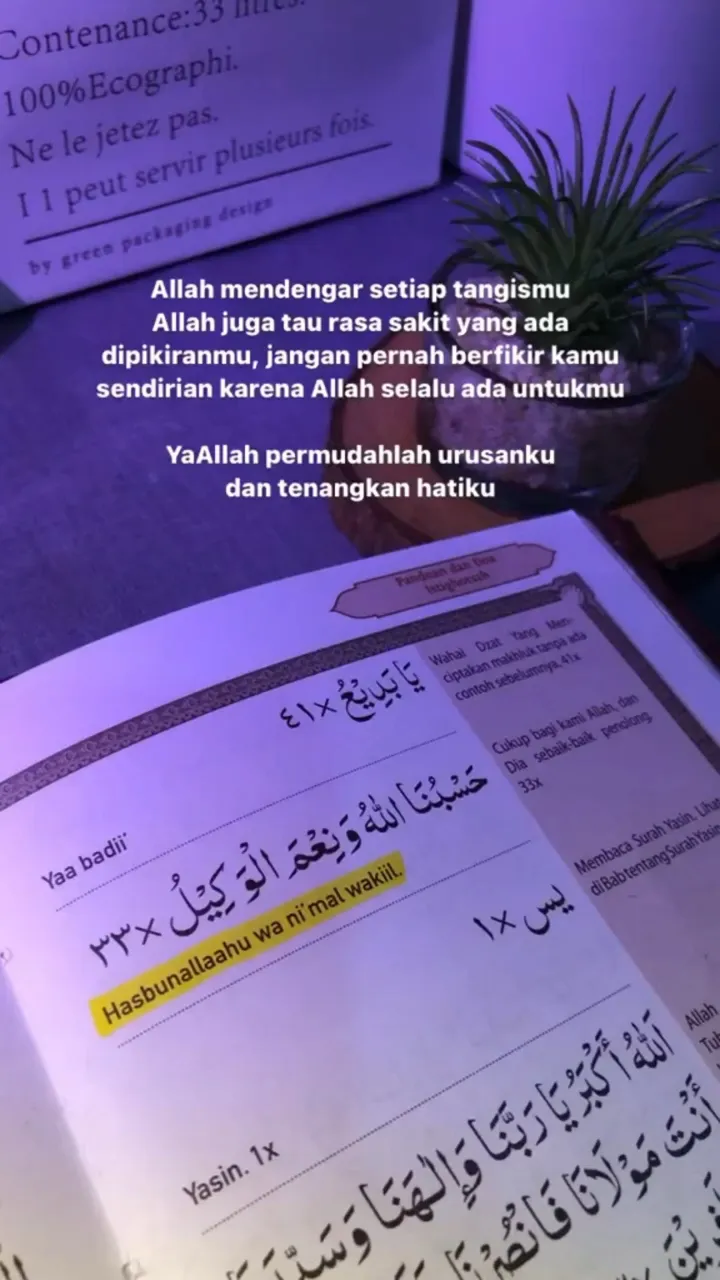 Contenance:33 litres.
100%Ecographi.
Ne le jetez pas.
I 1 peut servir plusieurs fois.
by green packaging design
Allah mendengar setiap tangismu
Allah juga tau rasa sakit yang ada
dipikiranmu, jangan pernah berfikir kamu
sendirian karena Allah selalu ada untukmu
YaAllah permudahlah urusanku
dan tenangkan hatiku
Panduan dan Doa
Istighotsah
يَا بَدِيْعُ ×٤١
Wahai Dzat Yang Men-
ciptakan makhluk tanpa ada
contoh sebelumnya. 41x
Yaa badii'
حَسْبُنَا اللهُ وَنِعْمَ الْوَكِيْلُ ×٣٣
Cukup bagi kami Allah, dan
Dia sebaik-baik penolong.
33x
Hasbunallaahu wa ni'mal wakiil.
يس ×١
Membaca Surah Yasin. Liha
di Bab tentang Surah Yasin
Yasin. 1x
اَللهُ أَكْبَرُ يَا رَبَّنَا وَإِلٰهَنَا وَسَيِّدَ
أَنْتَ مَوْلَانَا فَانْصُرْنَا
Allah
Tuh